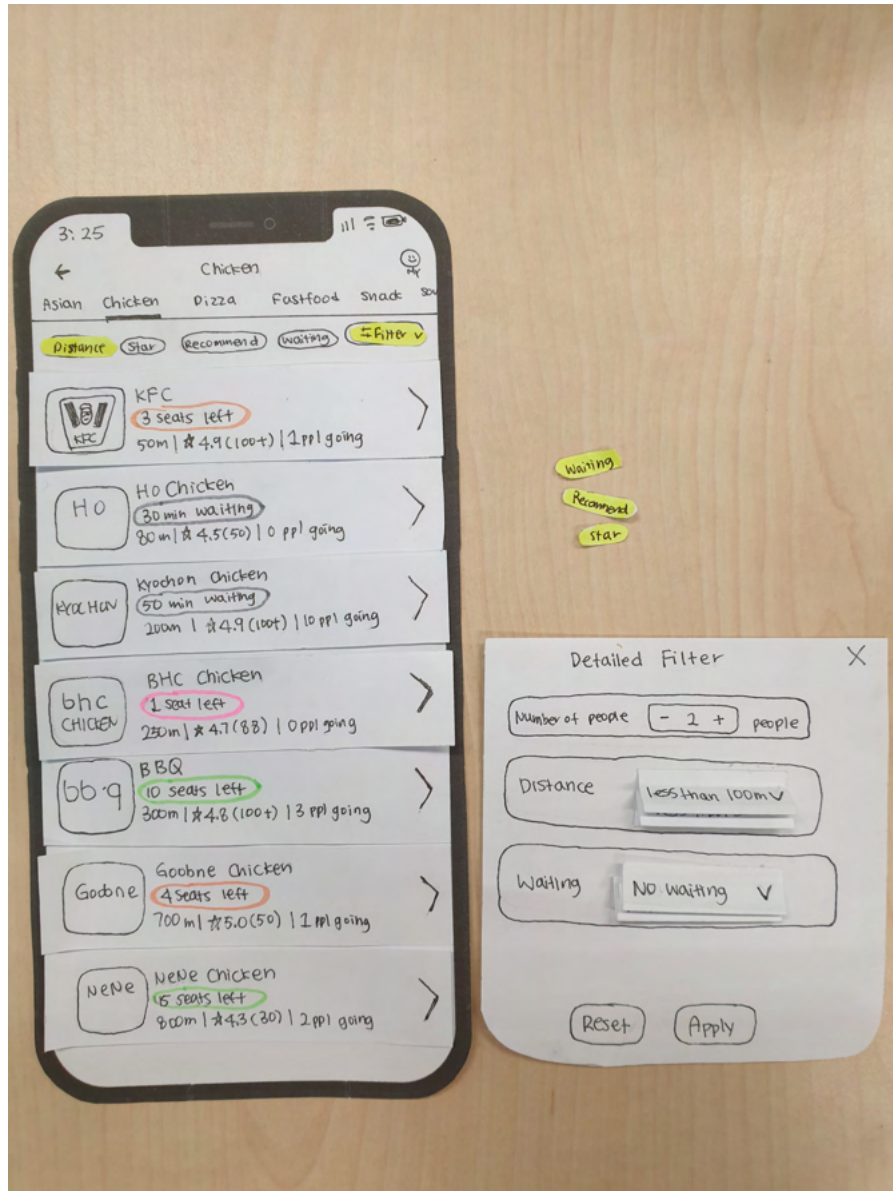 3:25
Chicken
MY
Asian Chicken Pizza Fastfood Snack Sou
Distance Star Recommend Waiting Filter
KFC
KFC
3 seats left
50m | ☆4.9(100+) | 1 ppl going
HO
Ho Chicken
30 min waiting
80m | ☆4.5(50) | 0 ppl going
KYOCHON
Kyochon Chicken
50 min waiting
200m | ☆4.9(100+) | 10 ppl going
bhc
CHICKEN
BHC Chicken
1 seat left
250m | ☆4.7(88) | 0 ppl going
bb·q
BBQ
10 seats left
300m | ☆4.8(100+) | 3 ppl going
Goobne
Goobne Chicken
4 seats left
700m | ☆5.0(50) | 1 ppl going
NeNe
NeNe Chicken
15 seats left
800m | ☆4.3(30) | 2 ppl going
Waiting
Recommend
Star
Detailed Filter X
Number of people - 2 + people
Distance less than 100m
Waiting No waiting
Reset Apply